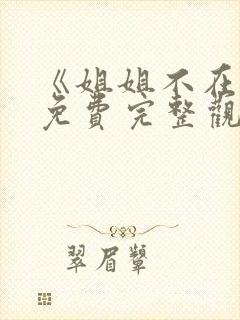 《姐姐不在
免费完整觀
翠眉顰